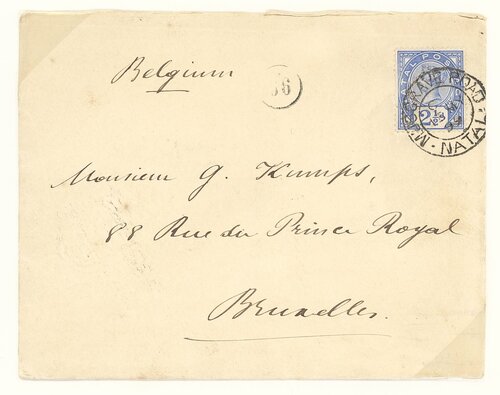 Belgium
36
NATAL POSTAGE
2½
MUSGRAVE ROAD · NATAL ·
Monsieur G. Kumps,
88 Rue du Prince Royal
Bruxelles.